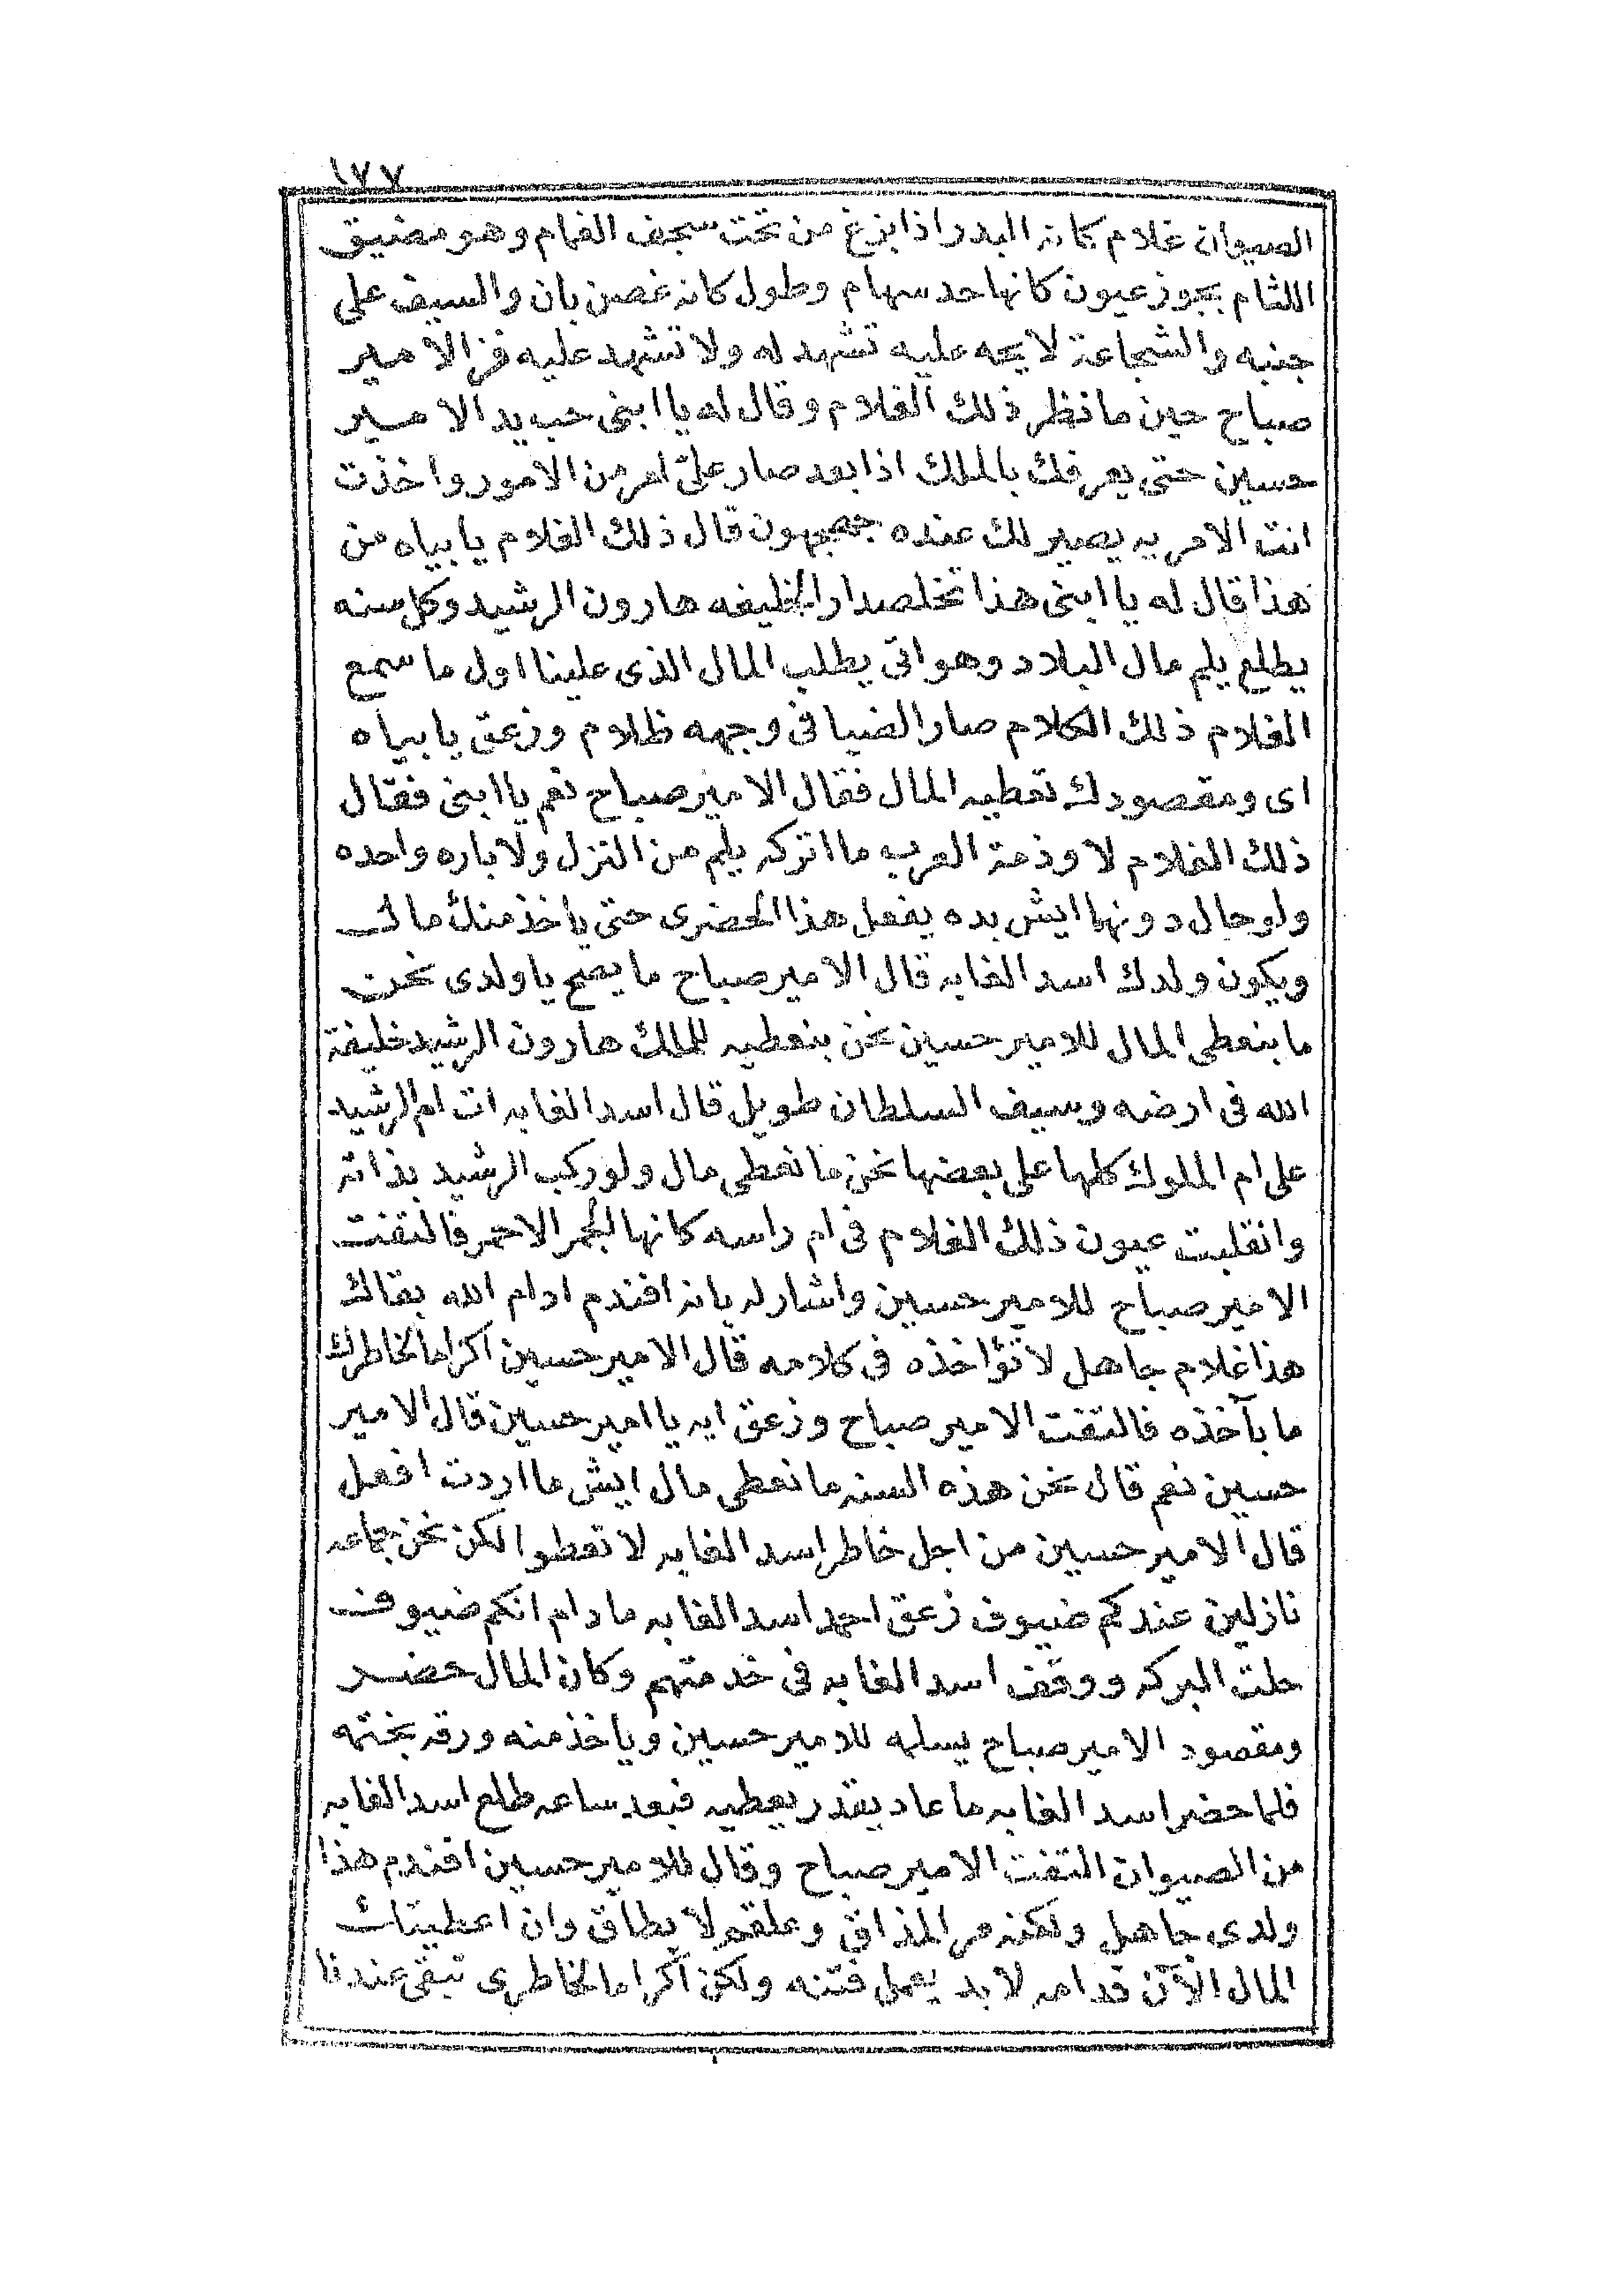 ١٧٧
الصيوان غلام كانه البدر اذا بزغ من تحت سجف الغمام وهو مضيق
اللثام بجوز عيون كانها حد سهام وطول كانه غصن بان والسيف على
جنبه والشجاعة لايحه عليه تشهد له ولا تشهد عليه فز الامير
صباح حين ما نظر ذلك الغلام وقال له يا ابنى حب يد الامير
حسين حتى يعرفك بالملك اذا بعد صار علىّ امر من الامور واخذت
انت الامريه يصير لك عنده قال ذلك الغلام يا بياه من
هذا قال له يا ابنى هذا تخلصدار الخليفه هارون الرشيد وكل سنه
يطلع يلم مال البلاد وهو اتى يطلب المال الذى علينا اول ما سمع
الغلام ذلك الكلام صار الضيا فى وجهه ظلام وزعق يا بياه
اى ومقصودك تعطيه المال فقال الامير صباح نعم يا ابنى فقال
ذلك الغلام لا وذمة العرب ما اتركه يلم من النزل ولا باره واحده
ولو حال دونها ايش بده يفعل هذا الحضرى حتى ياخذ منك مال
ويكون ولدك اسد الغابه قال الامير صباح ما يصح يا ولدى نحن
ما بنعطى المال للامير حسين نحن بنعطيه للملك هارون الرشيد خليفة
الله فى ارضه وسيف السلطان طويل قال اسد الغابه ات ام الرشيد
على ام الملوك كلها على بعضها نحن ما نعطى مال ولو ركب الرشيد بذاته
وانقلبت عيون ذلك الغلام فى ام راسه كانها الجمر الاحمر فالتفت
الامير صباح للامير حسين واشار له بانه افندم ادام الله بقاك
هذا غلام جاهل لا تؤاخذه فى كلامه قال الامير حسين اكراما لخاطرك
ما بآخذه فالتفت الامير صباح وزعق ايه يا امير حسين قال الامير
حسين نعم قال نحن هذه السنه ما نعطى مال ايش ما اردت افعل
قال الامير حسين من اجل خاطر اسد الغابه لا تعطوا لكن نحن جماعه
نازلين عندكم ضيوف زعق احمد اسد الغابه ما دام انكم ضيوف
حلت البركه ووقف اسد الغابه فى خدمتهم وكان المال حضر
ومقصود الامير صباح يسلمه للامير حسين وياخذ منه ورقه بختمه
فلما حضر اسد الغابه ما عاد يقدر يعطيه فبعد ساعه طلع اسد الغابه
من الصيوان التفت الامير صباح وقال للامير حسين افندم هذا
ولدى جاهل ولكنه مر المذاق وعلقم لا يطاق وان اعطيتك
المال الآن قدامه لا بد يعمل فتنه ولكن اكراما لخاطرى تبقى عندنا